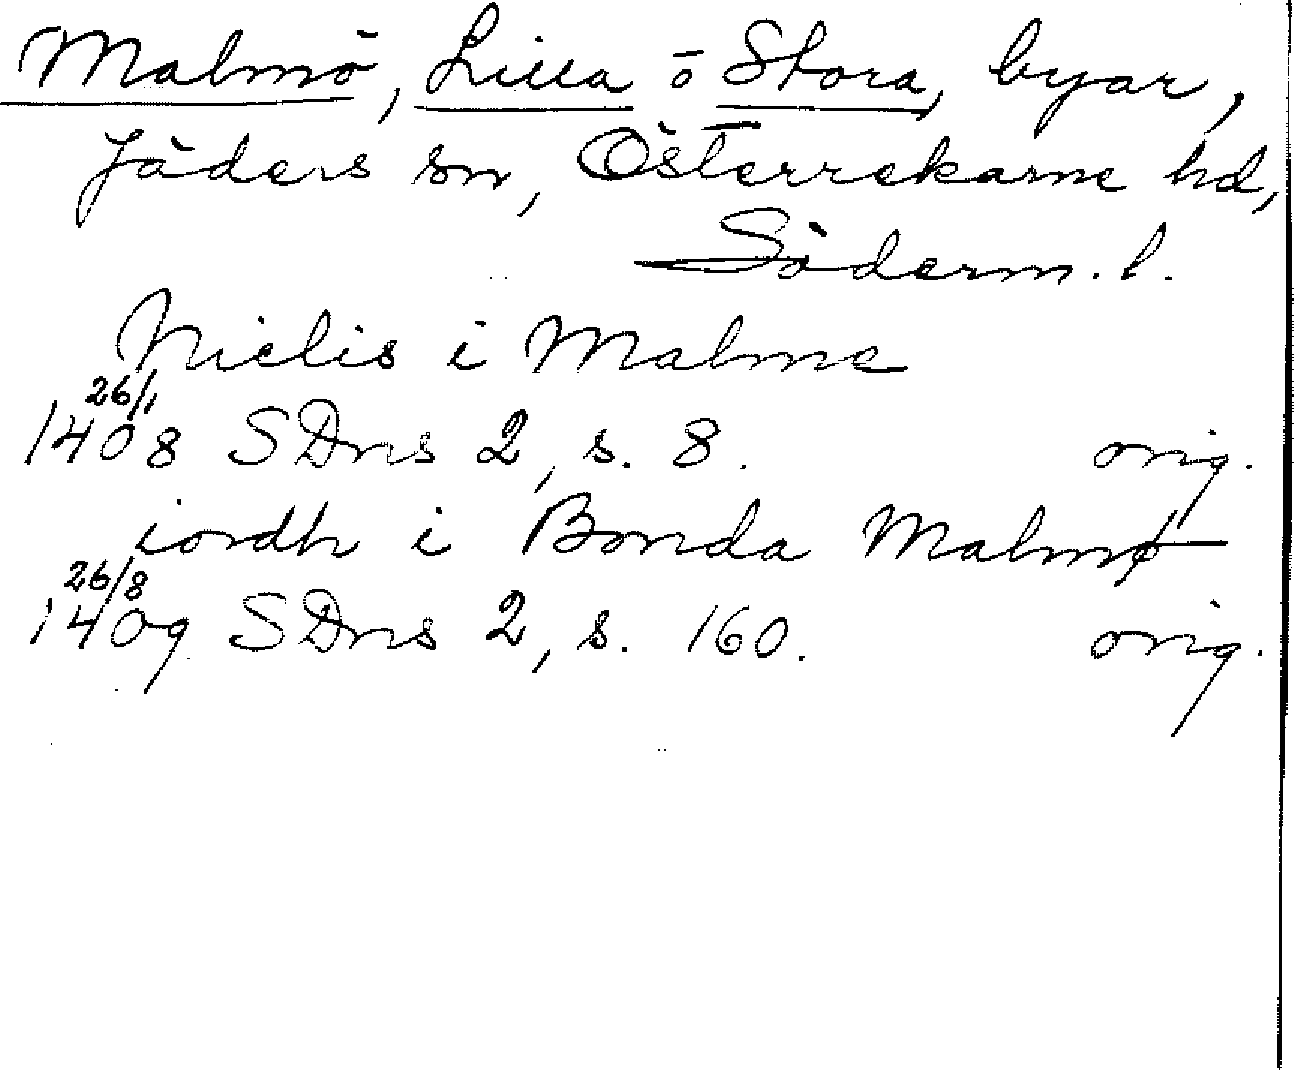 Malmö, Lilla o Stora, byar,
Jäders sn, Österrekarne hd,
Söderm. l.
Nielis i Malme
26/1
1408 SDns 2, s. 8. orig.
iordh i Bonda Malmø
26/8
1409 SDns 2, s. 160. orig.